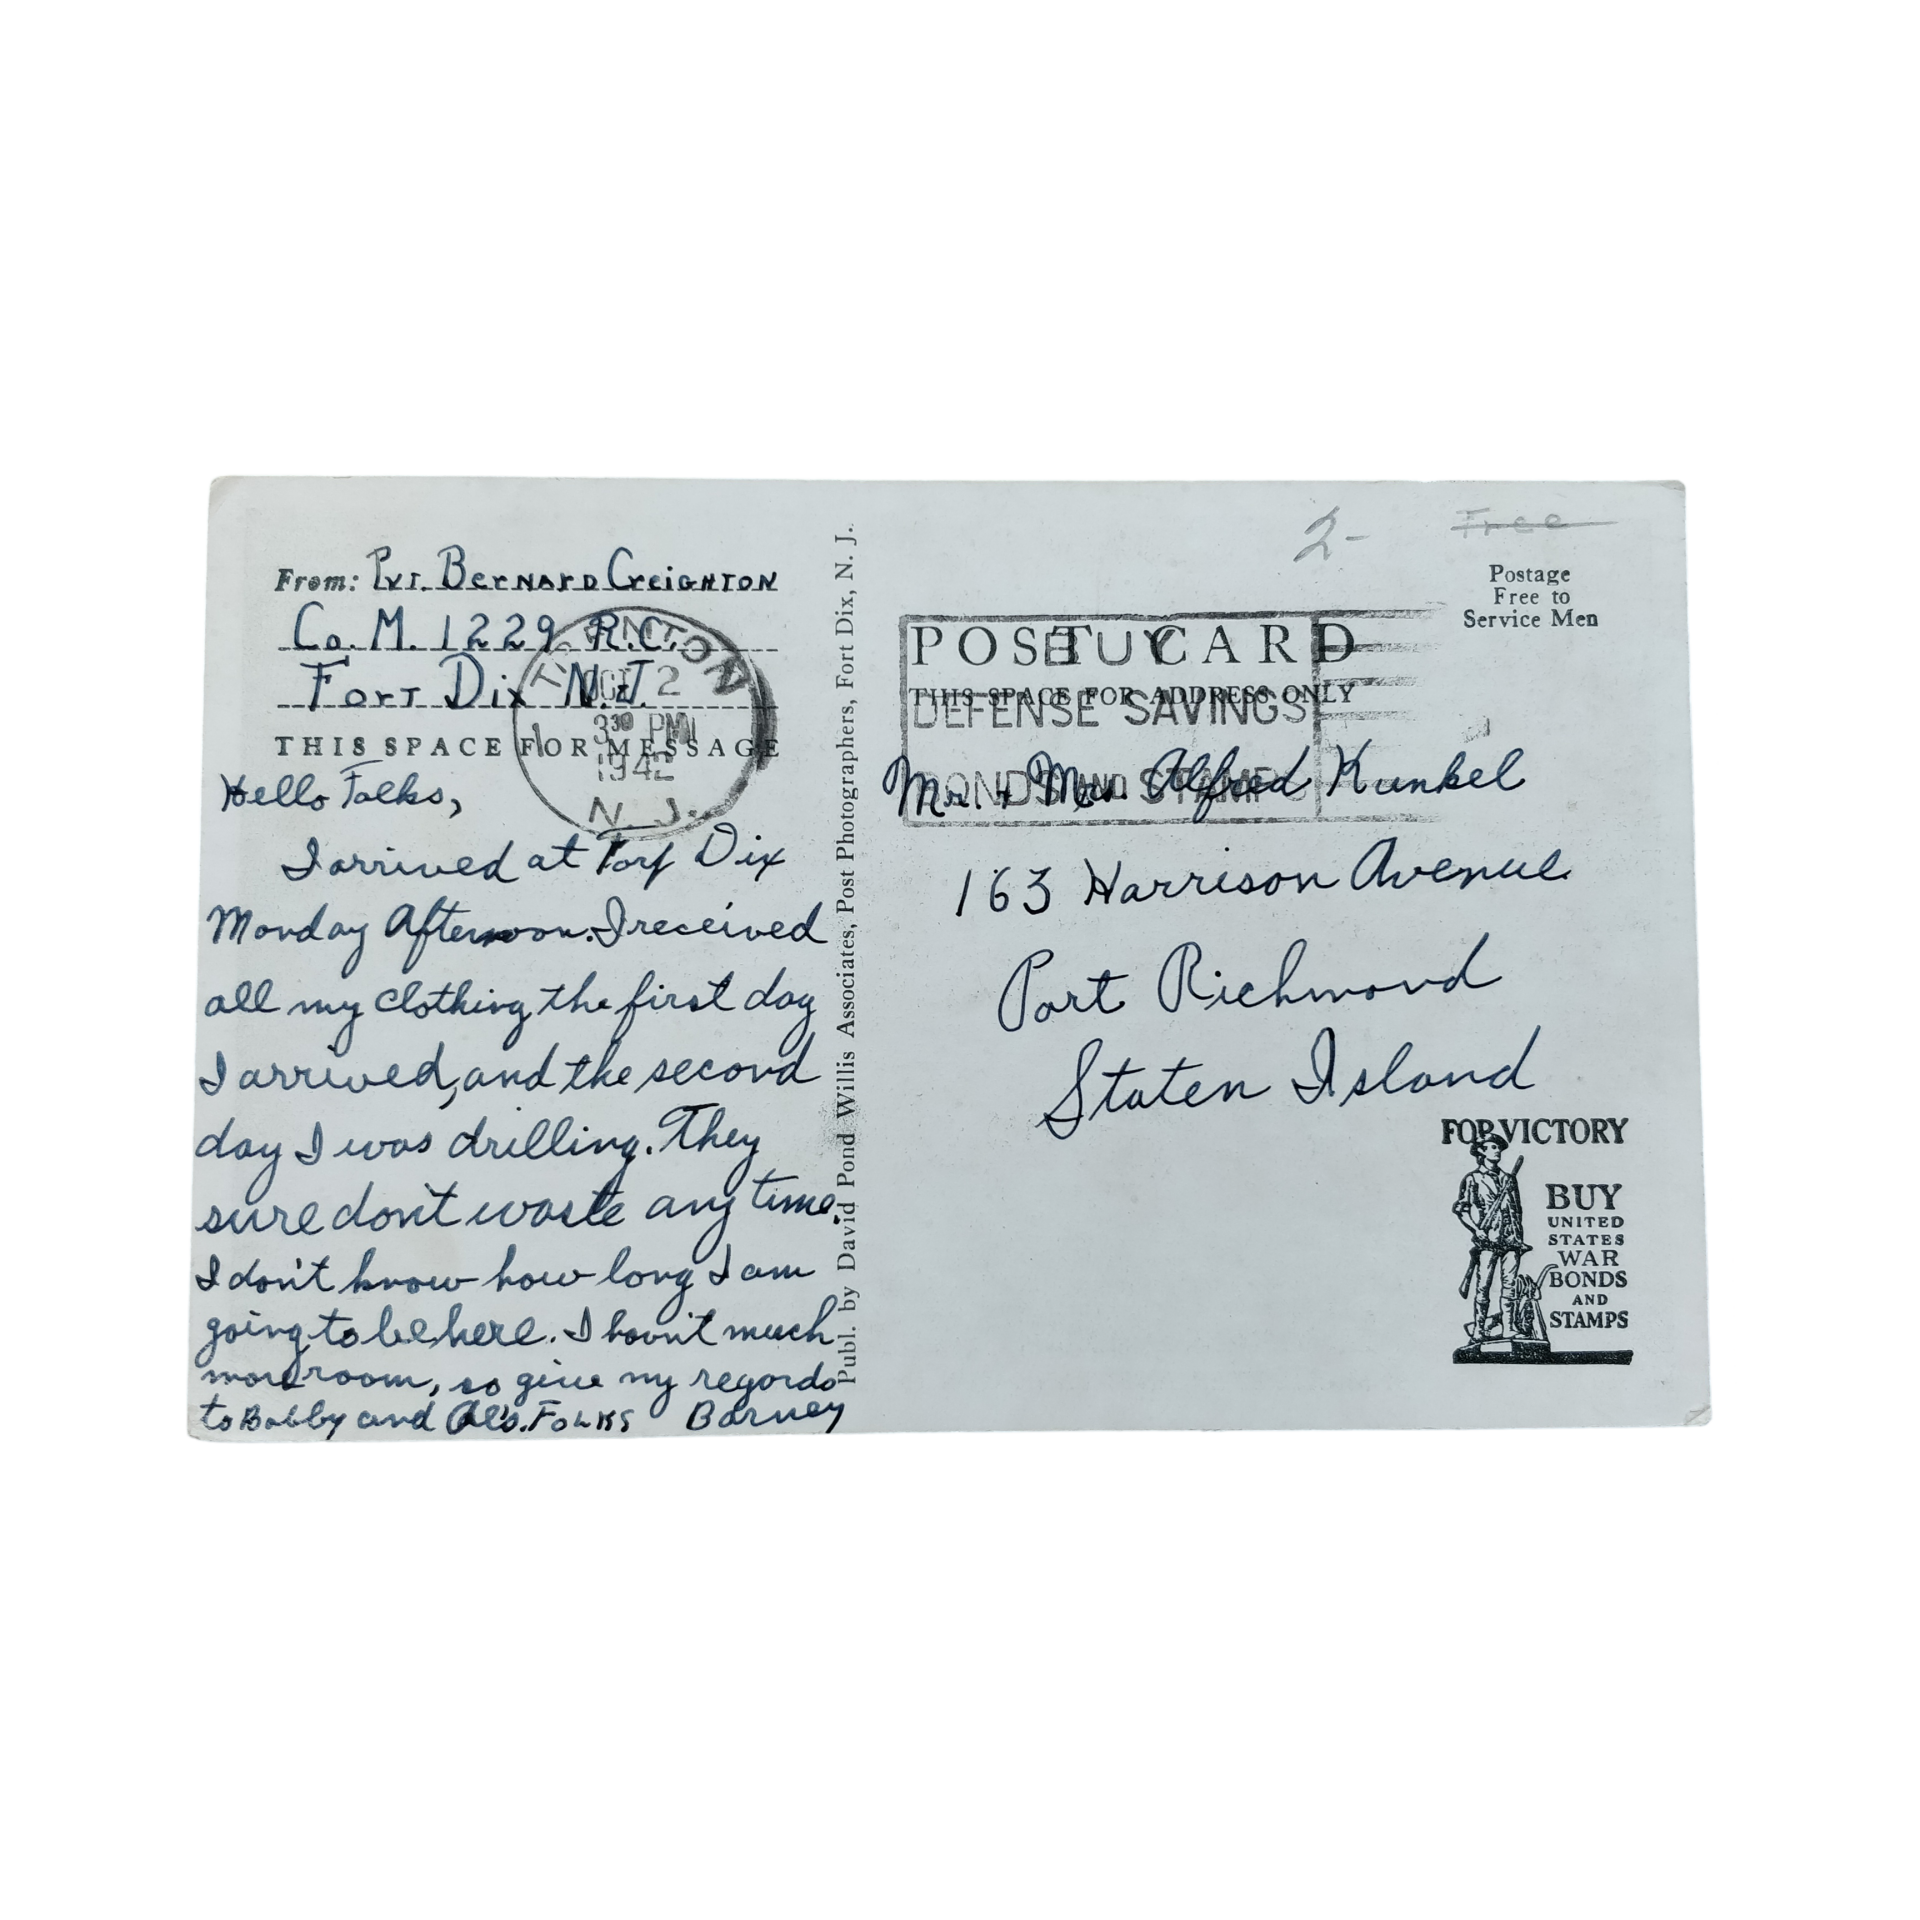 From: Pvt. Bernard Creighton
Co. M. 1229 R.C.
Fort Dix N.J.
THIS SPACE FOR MESSAGE
TRENTON
OCT 2
3 30 PM
1942
N. J.
Hello Folks,
I arrived at Fort Dix
Monday Afternoon. I received
all my clothing the first day
I arrived, and the second
day I was drilling. They
sure don't waste any time.
I don't know how long I am
going to be here. I havn't much
more room, so give my regards
to Bobby and Al's. Folks Barney
Publ. by David Pond Willis Associates, Post Photographers, Fort Dix, N. J.
2-
Free
Postage
Free to
Service Men
POST CARD
THIS SPACE FOR ADDRESS ONLY
BUY
DEFENSE SAVINGS
BONDS AND STAMPS
Mr. + Mrs. Alfred Kunkel
163 Harrison Avenue
Port Richmond
Staten Island
FOR VICTORY
BUY
UNITED
STATES
WAR
BONDS
AND
STAMPS